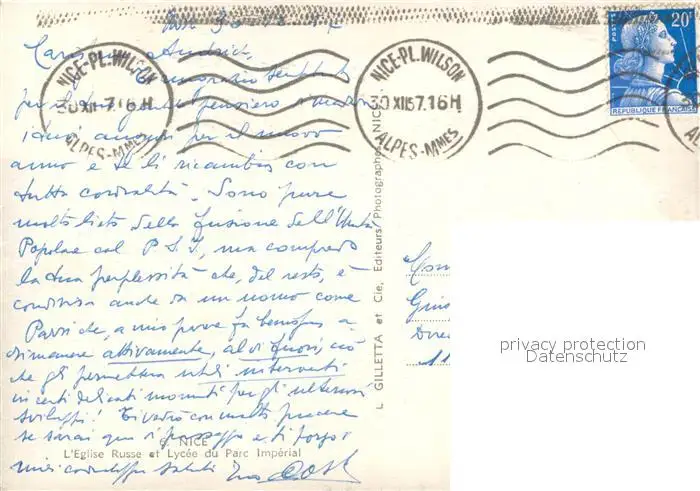 Nice 30
Carissimo
NICE-PL. WILSON
30 XII 57.16H
ALPES-MMES
NICE-PL. WILSON
30 XII 57.16H
ALPES-MMES
POSTES
20F
REPUBLIQUE FRANÇAISE
pensiero
auguri per il nuovo
anno e te li ricambio con
tutta cordialità. Sono pure
molto lieto della fusione dell'Unità
Popolare col P.S.I., ma comprendo
la tua perplessità che, del resto, è
condivisa anche da un uomo come
Parri che, a mio parere fa benissimo a
rimanere attivamente, al di fuori, ciò
che gli permetterà utili interventi
in certi delicati momenti per gli ulteriori
sviluppi! Ti vedrò con molto piacere
se sarai qui di passaggio e ti porgo i
miei cordiali saluti
6. NICE
L'Eglise Russe et Lycée du Parc Impérial
L GILLETTA et Cie, Editeurs/Photographes NICE
Dire
privacy protection
Datenschutz